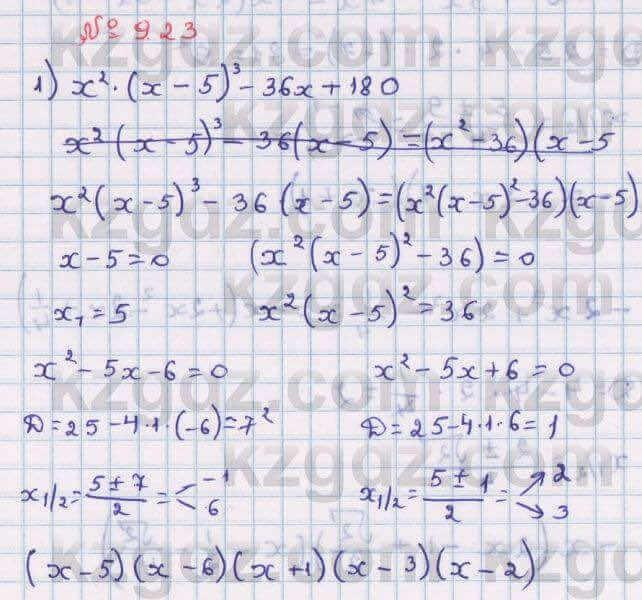 № 923
1) x²·(x-5)³-36x+180
x²(x-5)³-36(x-5)=(x²-36)(x-5
x²(x-5)³-36(x-5)=(x²(x-5)²-36)(x-5)
x-5=0 (x²(x-5)²-36)=0
x₁=5 x²(x-5)²=36
x²-5x-6=0 x²-5x+6=0
D=25-4·1·(-6)=7² D=25-4·1·6=1
x₁/₂=(5±7)/2= -1 6 x₁/₂=(5±1)/2= 2 3
(x-5)(x-6)(x+1)(x-3)(x-2)
kzgdz.com